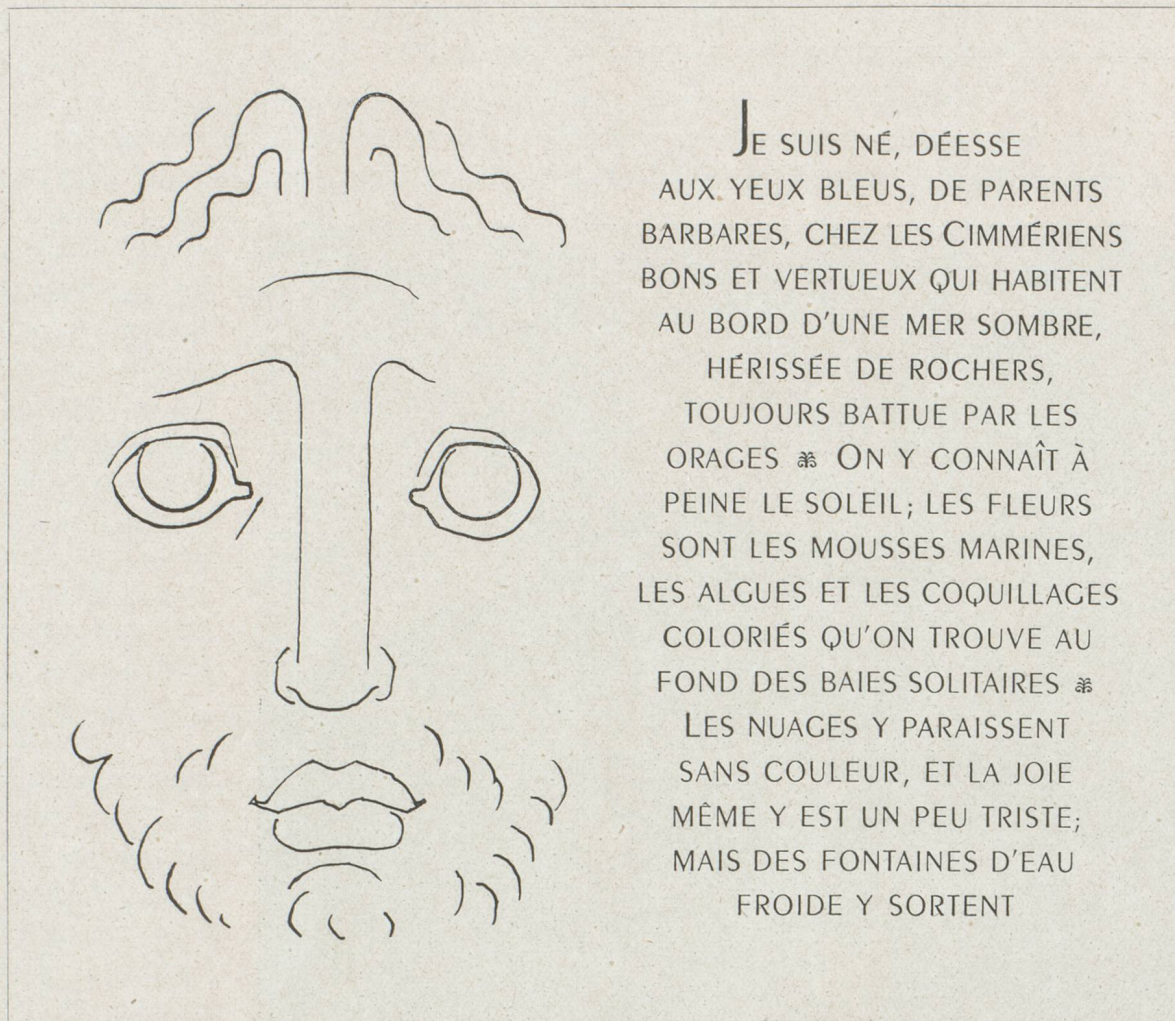 JE SUIS NÉ, DÉESSE
AUX YEUX BLEUS, DE PARENTS
BARBARES, CHEZ LES CIMMÉRIENS
BONS ET VERTUEUX QUI HABITENT
AU BORD D'UNE MER SOMBRE,
HÉRISSÉE DE ROCHERS,
TOUJOURS BATTUE PAR LES
ORAGES ❧ ON Y CONNAÎT À
PEINE LE SOLEIL; LES FLEURS
SONT LES MOUSSES MARINES,
LES ALGUES ET LES COQUILLAGES
COLORIÉS QU'ON TROUVE AU
FOND DES BAIES SOLITAIRES ❧
LES NUAGES Y PARAISSENT
SANS COULEUR, ET LA JOIE
MÊME Y EST UN PEU TRISTE;
MAIS DES FONTAINES D'EAU
FROIDE Y SORTENT